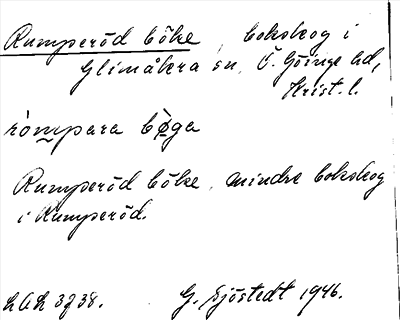 Rumperöd böke bokskog i
Glimåkra sn, Ö. Göinge hd,
Krist. l.
ròmpara bø̀ga
Rumperöd böke, mindre bokskog
i Rumperöd.
LAL 3738. G. Sjöstedt 1946.